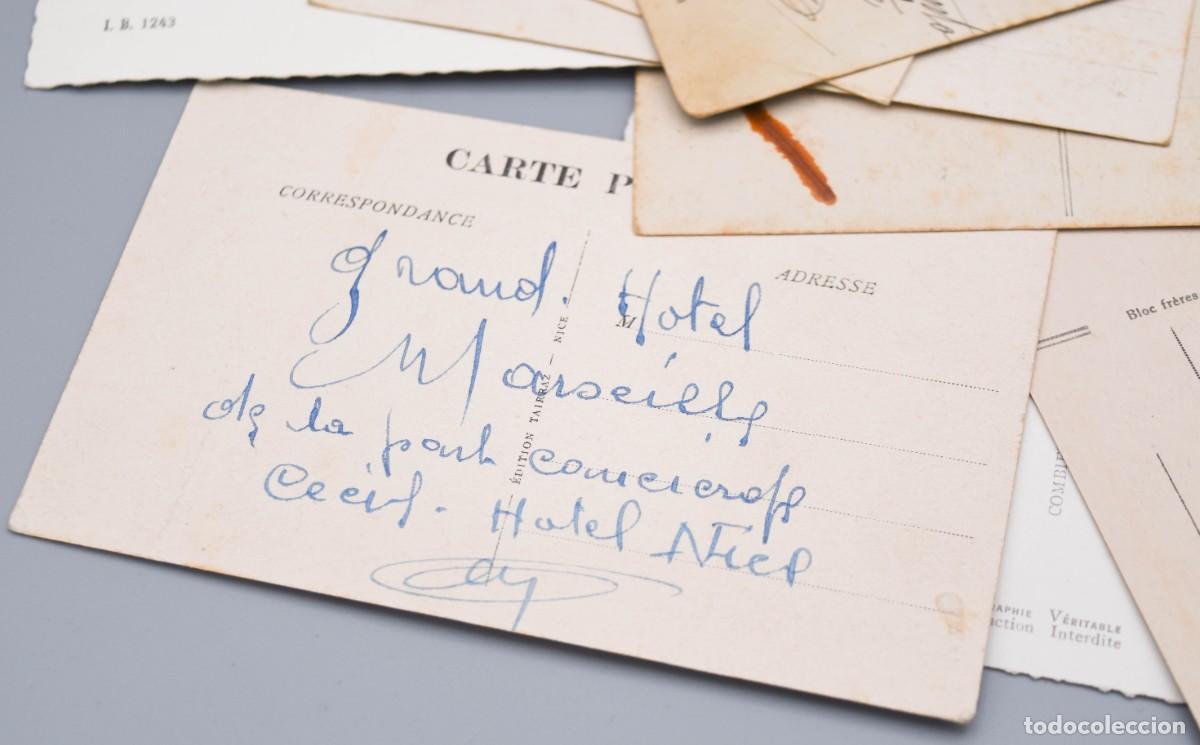 I. B. 1243
CARTE P
CORRESPONDANCE
ADRESSE
Grand. Hotel
M
Marseille
de la part
Cecil. Hotel Nice
ÉDITION TAIRRAZ — NICE
Bloc frères
COMBI
APHIE VÉRITABLE
uction Interdite
todocoleccion